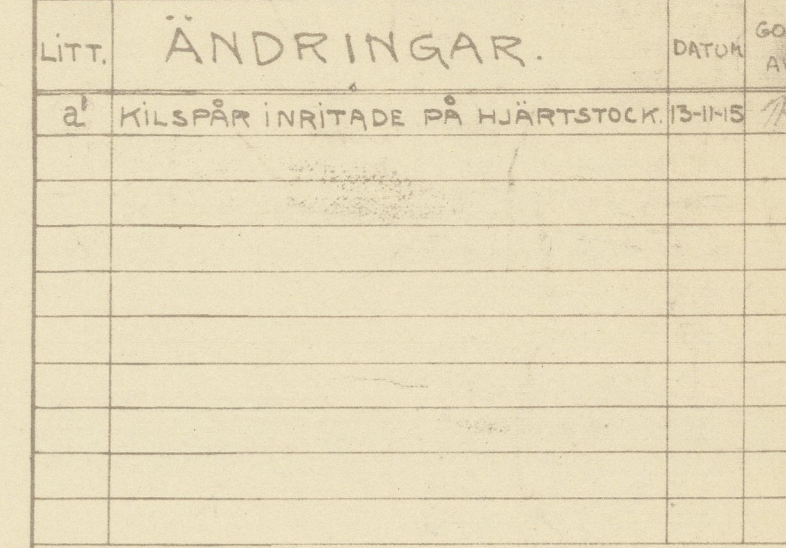 LITT. ÄNDRINGAR. DATUM GO
AV
a' KILSPÅR INRITADE PÅ HJÄRTSTOCK. 13-11-15